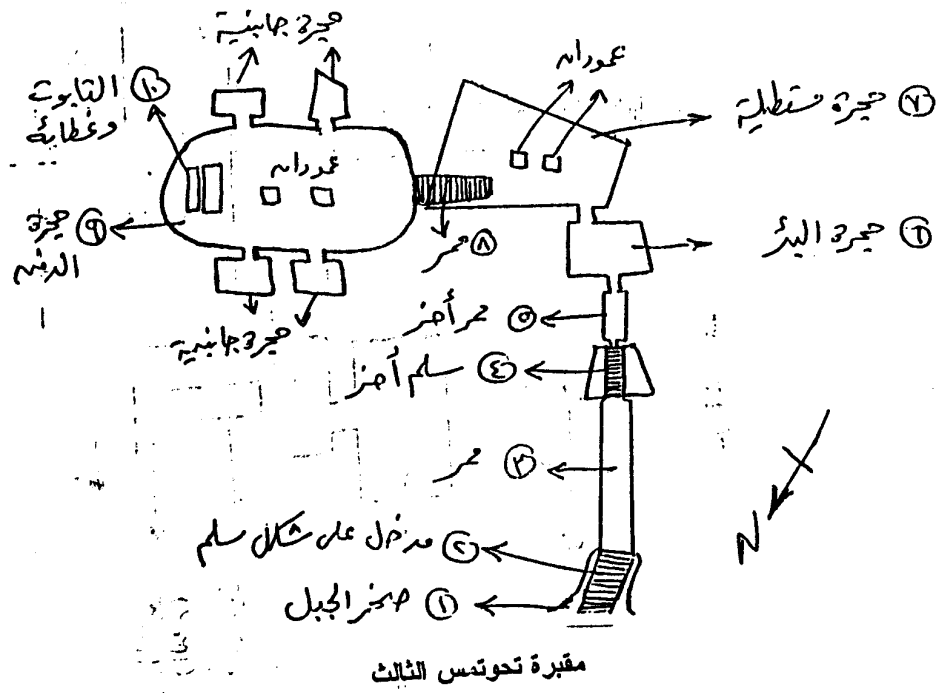 حجرة جانبية
عمودان
⑩ التابوت
وغطائه
⑦ حجرة مستطيلة
عمودان
⑨ حجرة
الدفن
⑧ ممر
⑥ حجرة البئر
حجرة جانبية
⑤ ممر أخر
④ سلم أخر
③ ممر
② مدخل على شكل سلم
① صخر الجبل
N
مقبرة تحوتمس الثالث